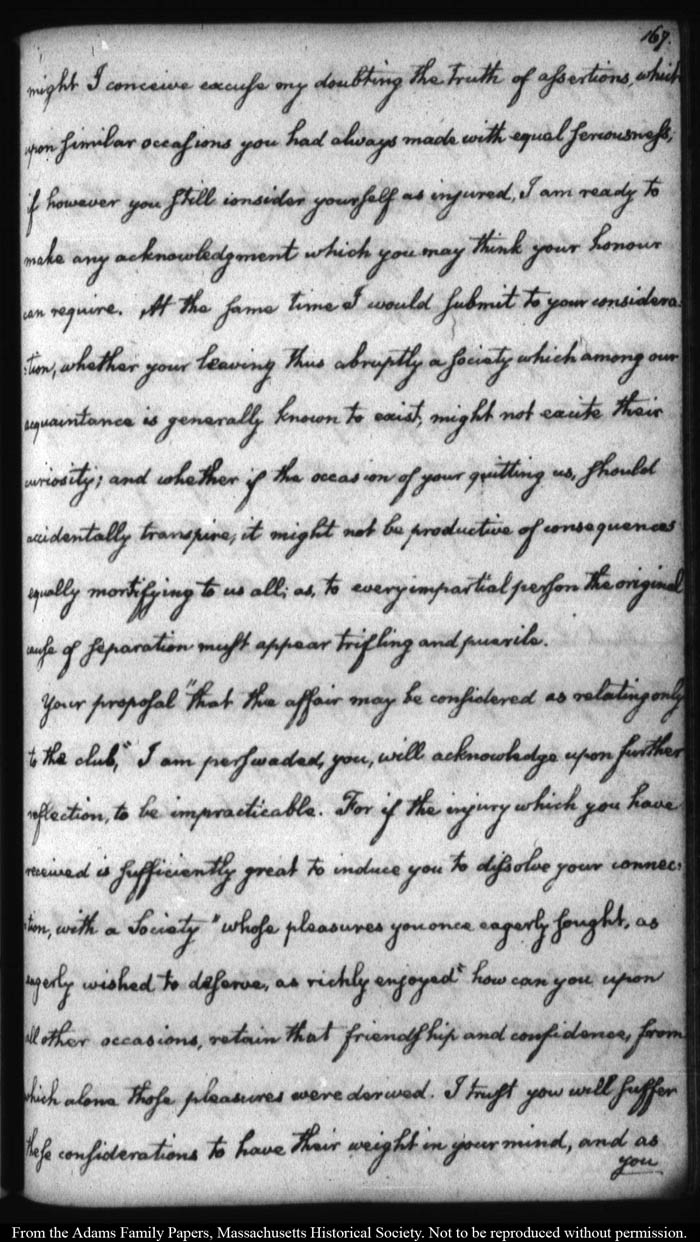 167.
might I conceive excuse my doubting the truth of assertions, which
upon similar occasions you had always made with equal seriousness;
if however you still consider yourself as injured, I am ready to
make any acknowledgment which you may think your honour
can require. At the same time I would submit to your considera-
:tion, whether your leaving thus abruptly a society which among our
acquaintance is generally known to exist, might not excite their
curiosity; and whether if the occasion of your quitting us, should
accidentally transpire, it might not be productive of consequences
equally mortifying to us all; as, to every impartial person the original
cause of separation must appear trifling and puerile.
Your proposal "that the affair may be considered as relating only
to the club," I am perswaded, you, will acknowledge upon further
reflection, to be impracticable. For if the injury which you have
received is sufficiently great to induce you to dissolve your connec:
:tion, with a Society "whose pleasures you once eagerly sought, as
eagerly wished to deserve, as richly enjoyed" how can you upon
all other occasions, retain that friendship and confidence, from
which alone those pleasures were derived. I trust you will suffer
these considerations to have their weight in your mind, and as
you
From the Adams Family Papers, Massachusetts Historical Society. Not to be reproduced without permission.